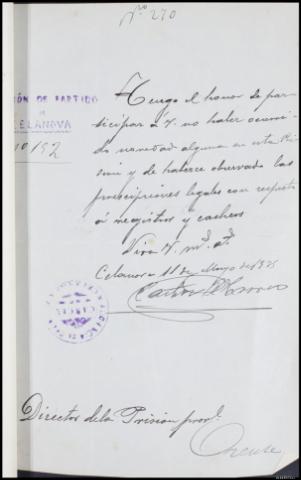 Nº 270
IÓN DE PARTIDO
DE
ELANOVA
Nº 192
Tengo el honor de par-
ticipar á V. no haber ocurri-
do novedad alguna en esta Pri-
sión y de haberse observado las
prescripciones legales con respecto
á registros y cacheos
Viva V. m.s a.s
Celanova 11 de Mayo de 192
Director de la Prisión provl.
Orense